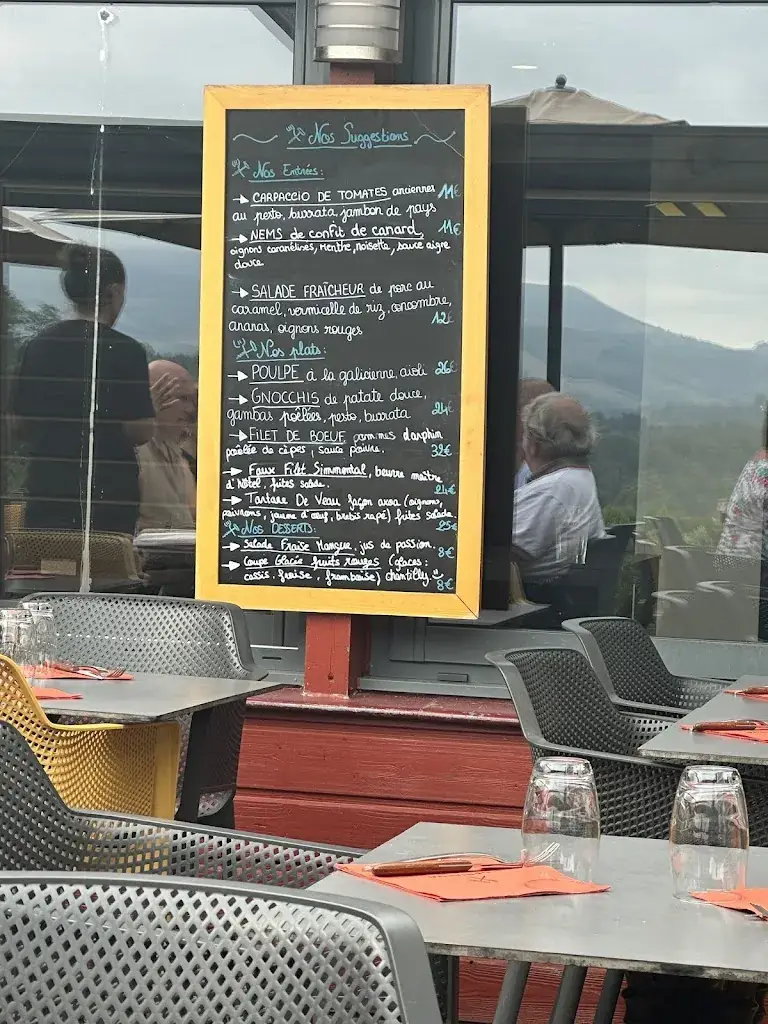 Nos Suggestions
Nos Entrées:
→ CARPACCIO DE TOMATES anciennes 11€
au pesto, burrata jambon de pays
→ NEMS de confit de canard, 11€
oignons caramélisés, menthe, noisette, sauce aigre
douce
→ SALADE FRAÎCHEUR de porc au
caramel, vermicelle de riz, concombre,
ananas, oignons rouges 12€
Nos plats:
→ POULPE à la galicienne, aioli 26€
→ GNOCCHIS de patate douce,
gambas poêlées, pesto, burrata 24€
→ FILET DE BOEUF pommes dauphin
poêlée de cèpes, sauce poivre. 32€
→ Faux Filet Simmental, beurre maître
d'hôtel, frites salade. 24€
→ Tartare De Veau façon axoa (oignons,
poivrons, jaune d'œuf, brebis rapé) frites salade. 25€
Nos DESSERTS:
→ Salade Fraise Mangue, jus de passion. 8€
→ Coupe Glacée fruits rouges (glaces:
cassis, fraise, framboise) chantilly 8€